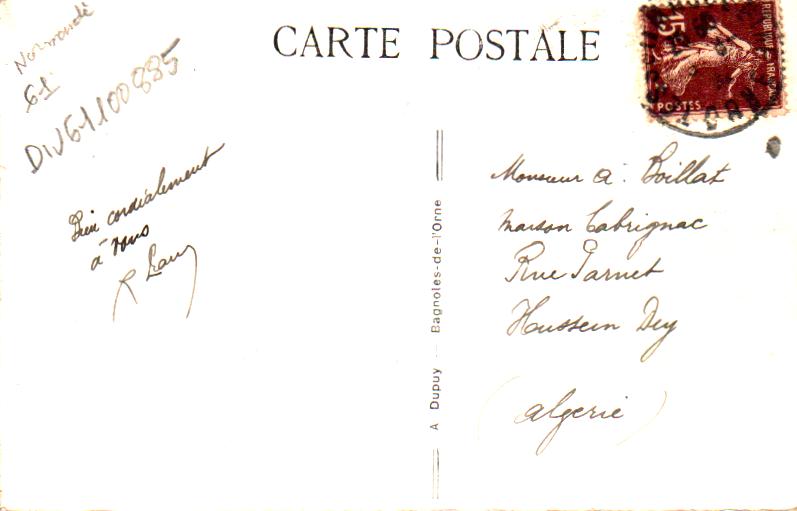 CARTE POSTALE
Normandie
61
DIV61100885
Bien cordialement
à vous
A Dupuy — Bagnoles-de-l'Orne
Monsieur A. Boillat
maison Cabrignac
Rue Parnet
Hussein Dey
(Algerie)
15
REPUBLIQUE FRANÇAISE
POSTES